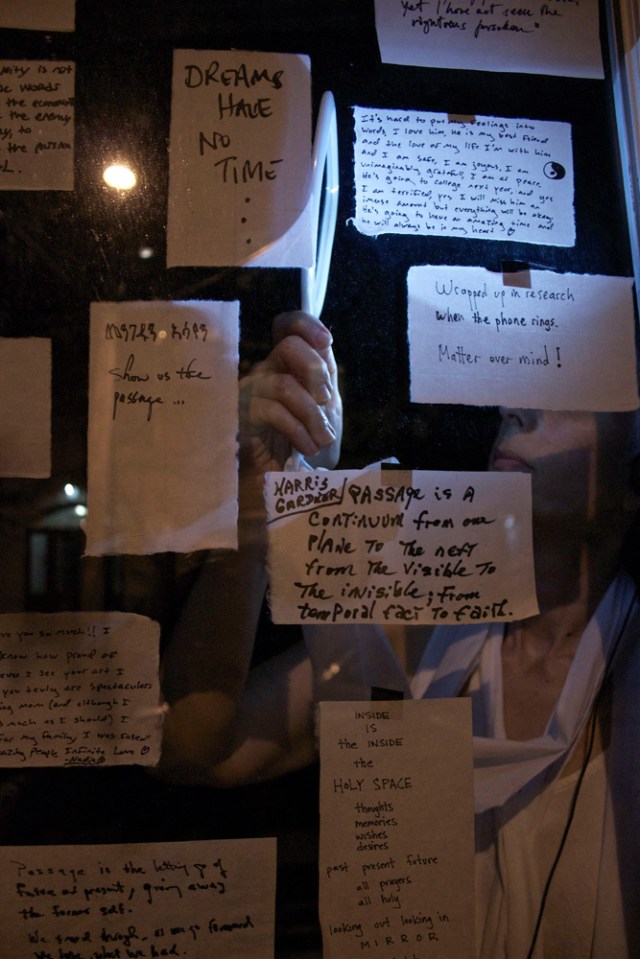 yet I have not seen the
righteous forsaken"
nity is not
words
the
the energy
to
the
DREAMS
HAVE
NO
TIME
.
.
.
It's hard to put my feelings into
words, I love him, He's my best friend
and the love of my life I'm with him
and I am safe, I am joyous, I am
unimaginably grateful, I am at peace.
He's going to college next year, and yes
I am terrified, yes I will miss him an
imense amount but everything will be okay.
He's going to have an amazing time and
he will always be in my heart
Wrapped up in research
when the phone rings.
Matter over mind!
Show us the
passage ...
HARRIS
GARDNER
PASSAGE is A
CONTINUUM from one
PLANE TO The next
from The Visible To
The invisible; from
temporal fact To faith.
ve you so much!! I
know how proud of
ever I see your art I
you truly are spectacular
ing mom (and although I
as much as I should) I
for my family, I was
people Infinite Love
-Nadia
INSIDE
IS
the INSIDE
the
HOLY SPACE
thoughts
memories
wishes
desires
past present future
all prayers
all holy
looking out looking in
MIRROR
Passage is the letting go of
future or present, giving away
the former self.
We through, as we go forward
We lose what we had.